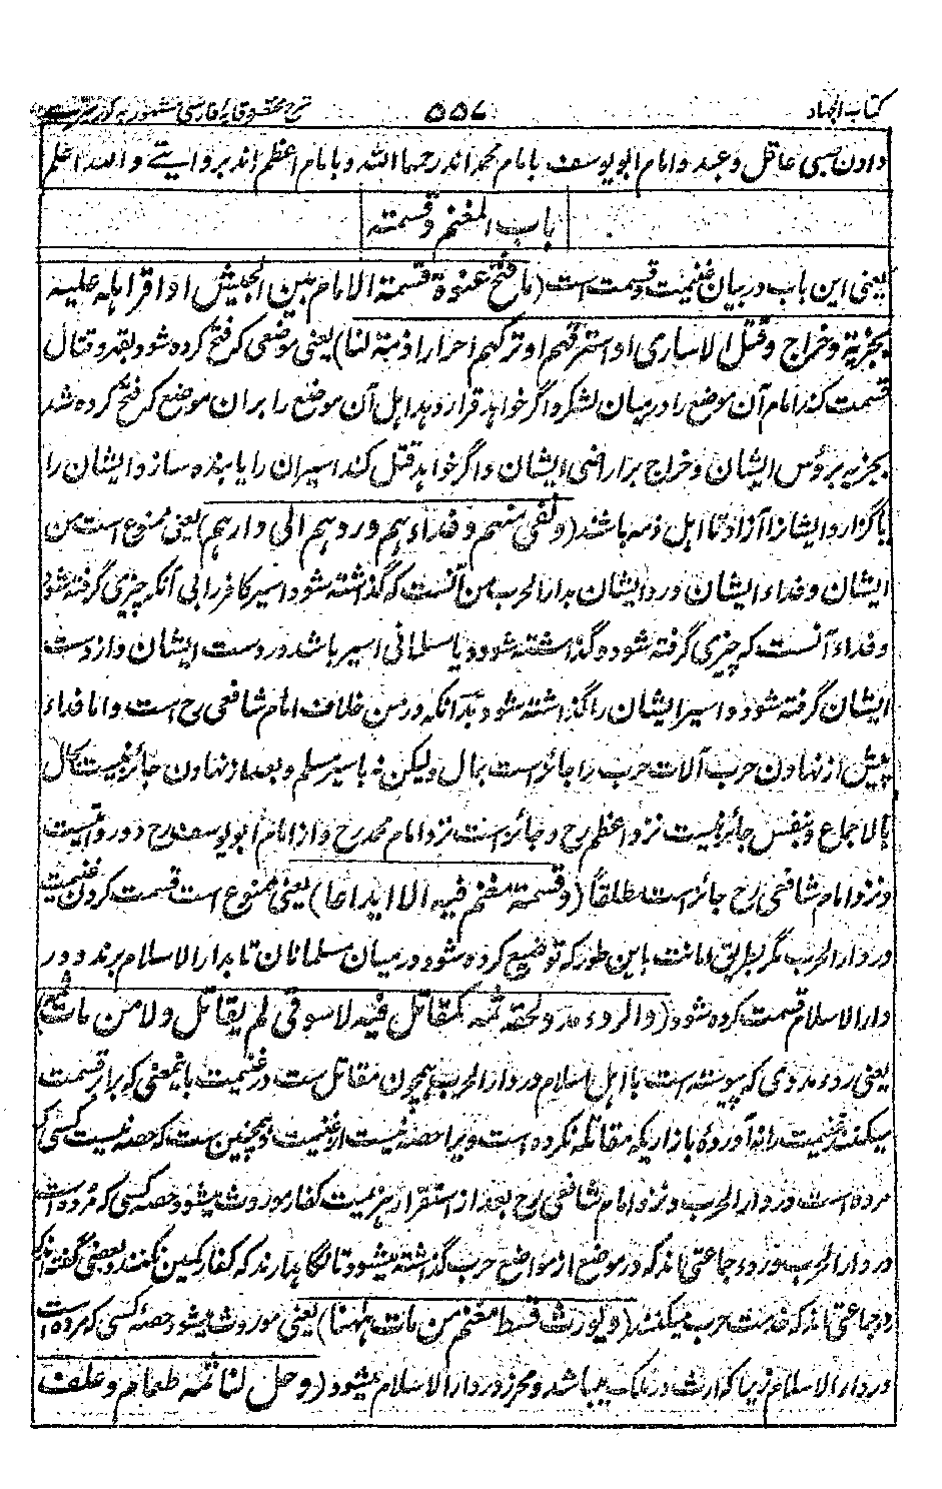 کتاب الجهاد ۵۵۷ شرح مختصر وقایه فارسی مشهور به
دادن صبی عاقل و عبد و امام ابو یوسف با امام محمد اند رحمهما الله و با امام اعظم اند بروایتے و الله اعلم
باب المغنم و قسمته
یعنی این باب در بیان غنیمت و قسمت است (ما فتح عنوة قسمة الامام بین الجیش او اقر اهله علیه
بجزیة و خراج و قتل الاساری او استرقهم او ترکهم احرارا ذمة لنا) یعنی موضعی که فتح کرده شود بقهر و قتال
قسمت کند امام آن موضع را در میان لشکر و اگر خواهد قرار دهد اهل آن موضع را بران موضع که فتح کرده شد
بجزیه بر رؤس ایشان و خراج بر اراضی ایشان و اگر خواهد قتل کند اسیران را یا بنده سازد ایشان را
یا گزارد ایشانرا آزاد تا اهل ذمه باشند (و نفی منهم و فداءهم و ردهم الی دارهم) یعنی ممنوع است من
ایشان و فداء ایشان و رد ایشان بدار الحرب من آنست که گذاشته شود اسیر کافر را بی آنکه چیزی گرفته شود
و فداء آنست که چیزی گرفته شود و گذاشته شود و یا مسلمانی اسیر باشد در دست ایشان و از دست
ایشان گرفته شود و اسیر ایشان را گذاشته شود بدانکه در من خلاف امام شافعی رح است و اما فداء
پیش از نهادن حرب آلات حرب را جائز است بمال ولیکن نه باسیر مسلم و بعد از نهادن جائز نیست بمال
بالاجماع و بنفس جائز نیست نزد اعظم رح و جائز است نزد امام محمد رح و از امام ابو یوسف رح دو روایتست
و نزد امام شافعی رح جائز است مطلقاً (و قسمة مغنم فیه الا ایداعا) یعنی ممنوع است قسمت کردن غنیمت
در دار الحرب مگر بطریق امانت باین طور که توضیع کرده شود در میان مسلمانان تا بدار الاسلام برند و در
دار الاسلام قسمت کرده شود (و الردء مدد لحقه ثمه کمقاتل فیه لا سوقی لم یقاتل ولا من مات ثمه)
یعنی ردء و مددی که پیوسته است با اهل اسلام در دار الحرب همچون مقاتل ست در غنیمت بایمعنی که برابر قسمت
میکنند غنیمت را نه آورده بازاریکه مقاتله نکرده است ویرا حصه نیست از غنیمت و همچنین ست که حصه نیست کسی که
مرده است در دار الحرب و نزد امام شافعی رح بعد از استقرار هزیمت کفار موروث میشود حصه کسی که مرده است
در دار الحرب و ردء جماعتی اند که در موضع از مواضع حرب گذاشته میشود تا نگاہدارند که کفار کمین نکنند و بعضی گفته اند
ردء جماعتی اند که خدمت حرب میکنند (و یورث قسط مغنم من مات ههنا) یعنی موروث میشود حصه کسی که مرده است
در دار الاسلام زیرا که ارث در ملک میباشد و محرز در دار الاسلام میشود (و حل لنا ثمه طعام و علف